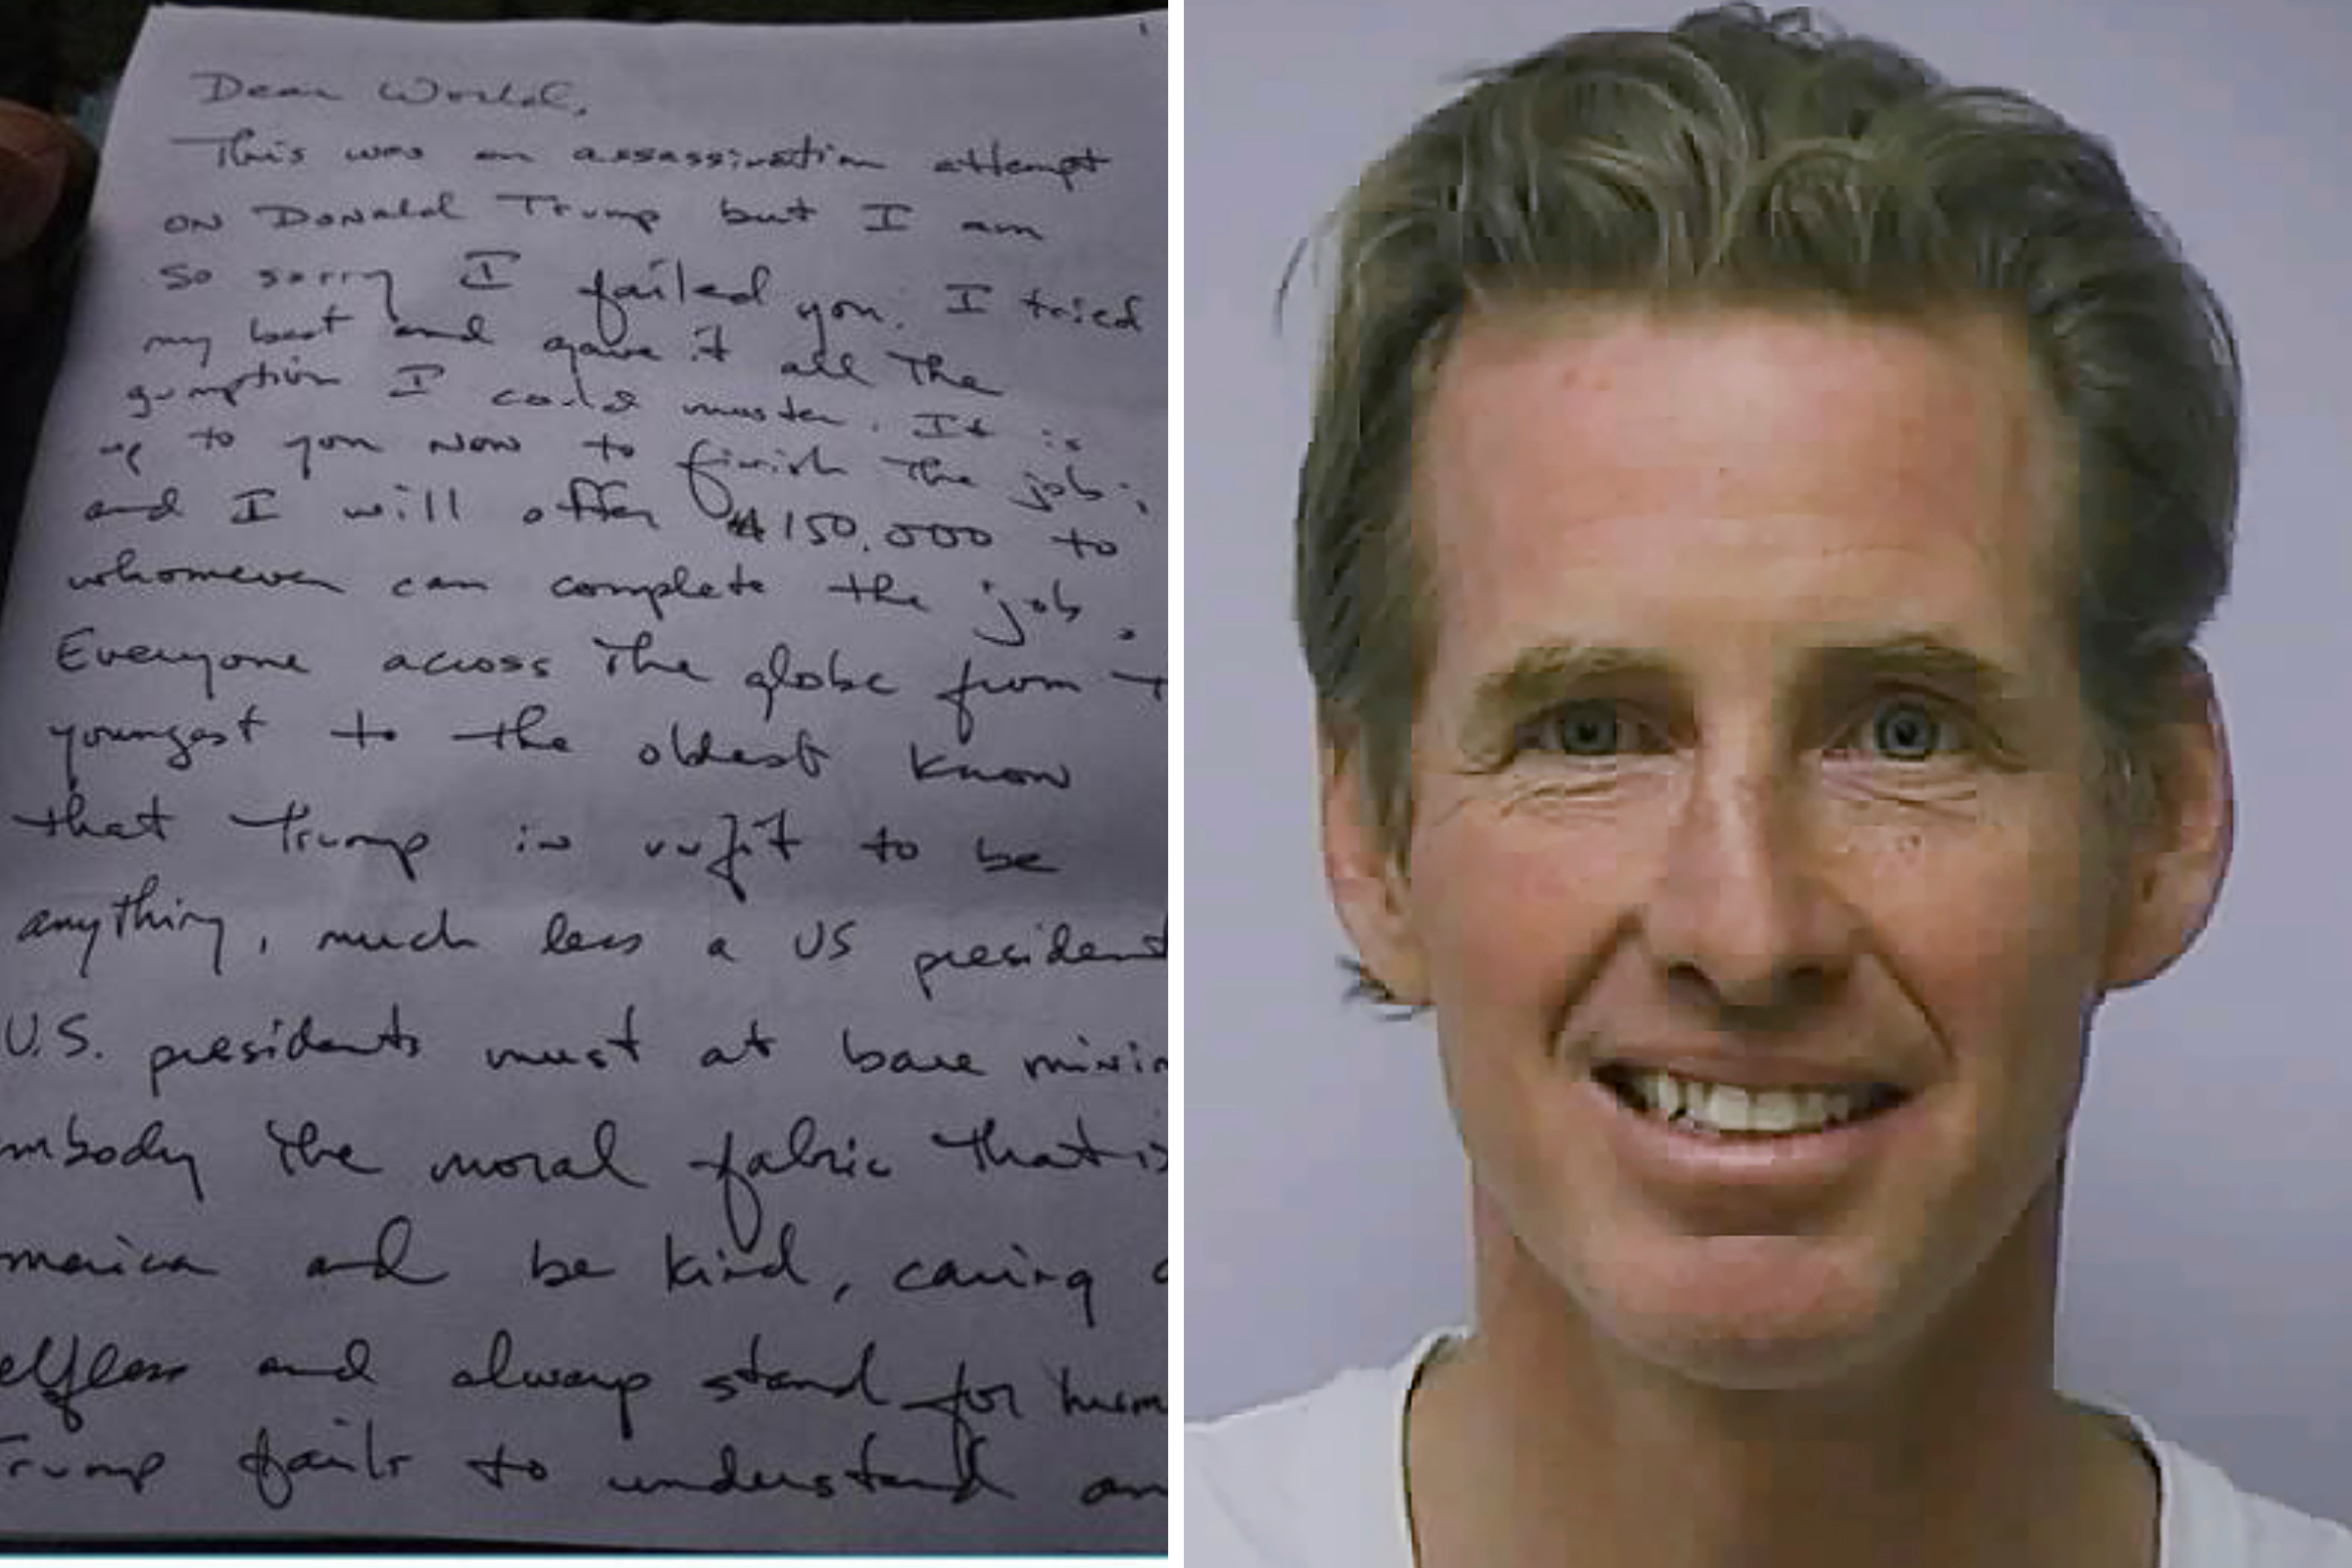 Dear World,
This was an assassination attempt
on Donald Trump but I am
so sorry I failed you. I tried
my best and gave it all the
gumption I could muster. It is
up to you now to finish the job;
and I will offer $150,000 to
whomever can complete the job.
Everyone across the globe from t
youngest to the oldest know
that Trump is unfit to be
anything, much less a US president
U.S. presidents must at bare minim
mbody the moral fabric that is
merica and be kind, caring
elfless and always stand for huma
Trump fails to understand an